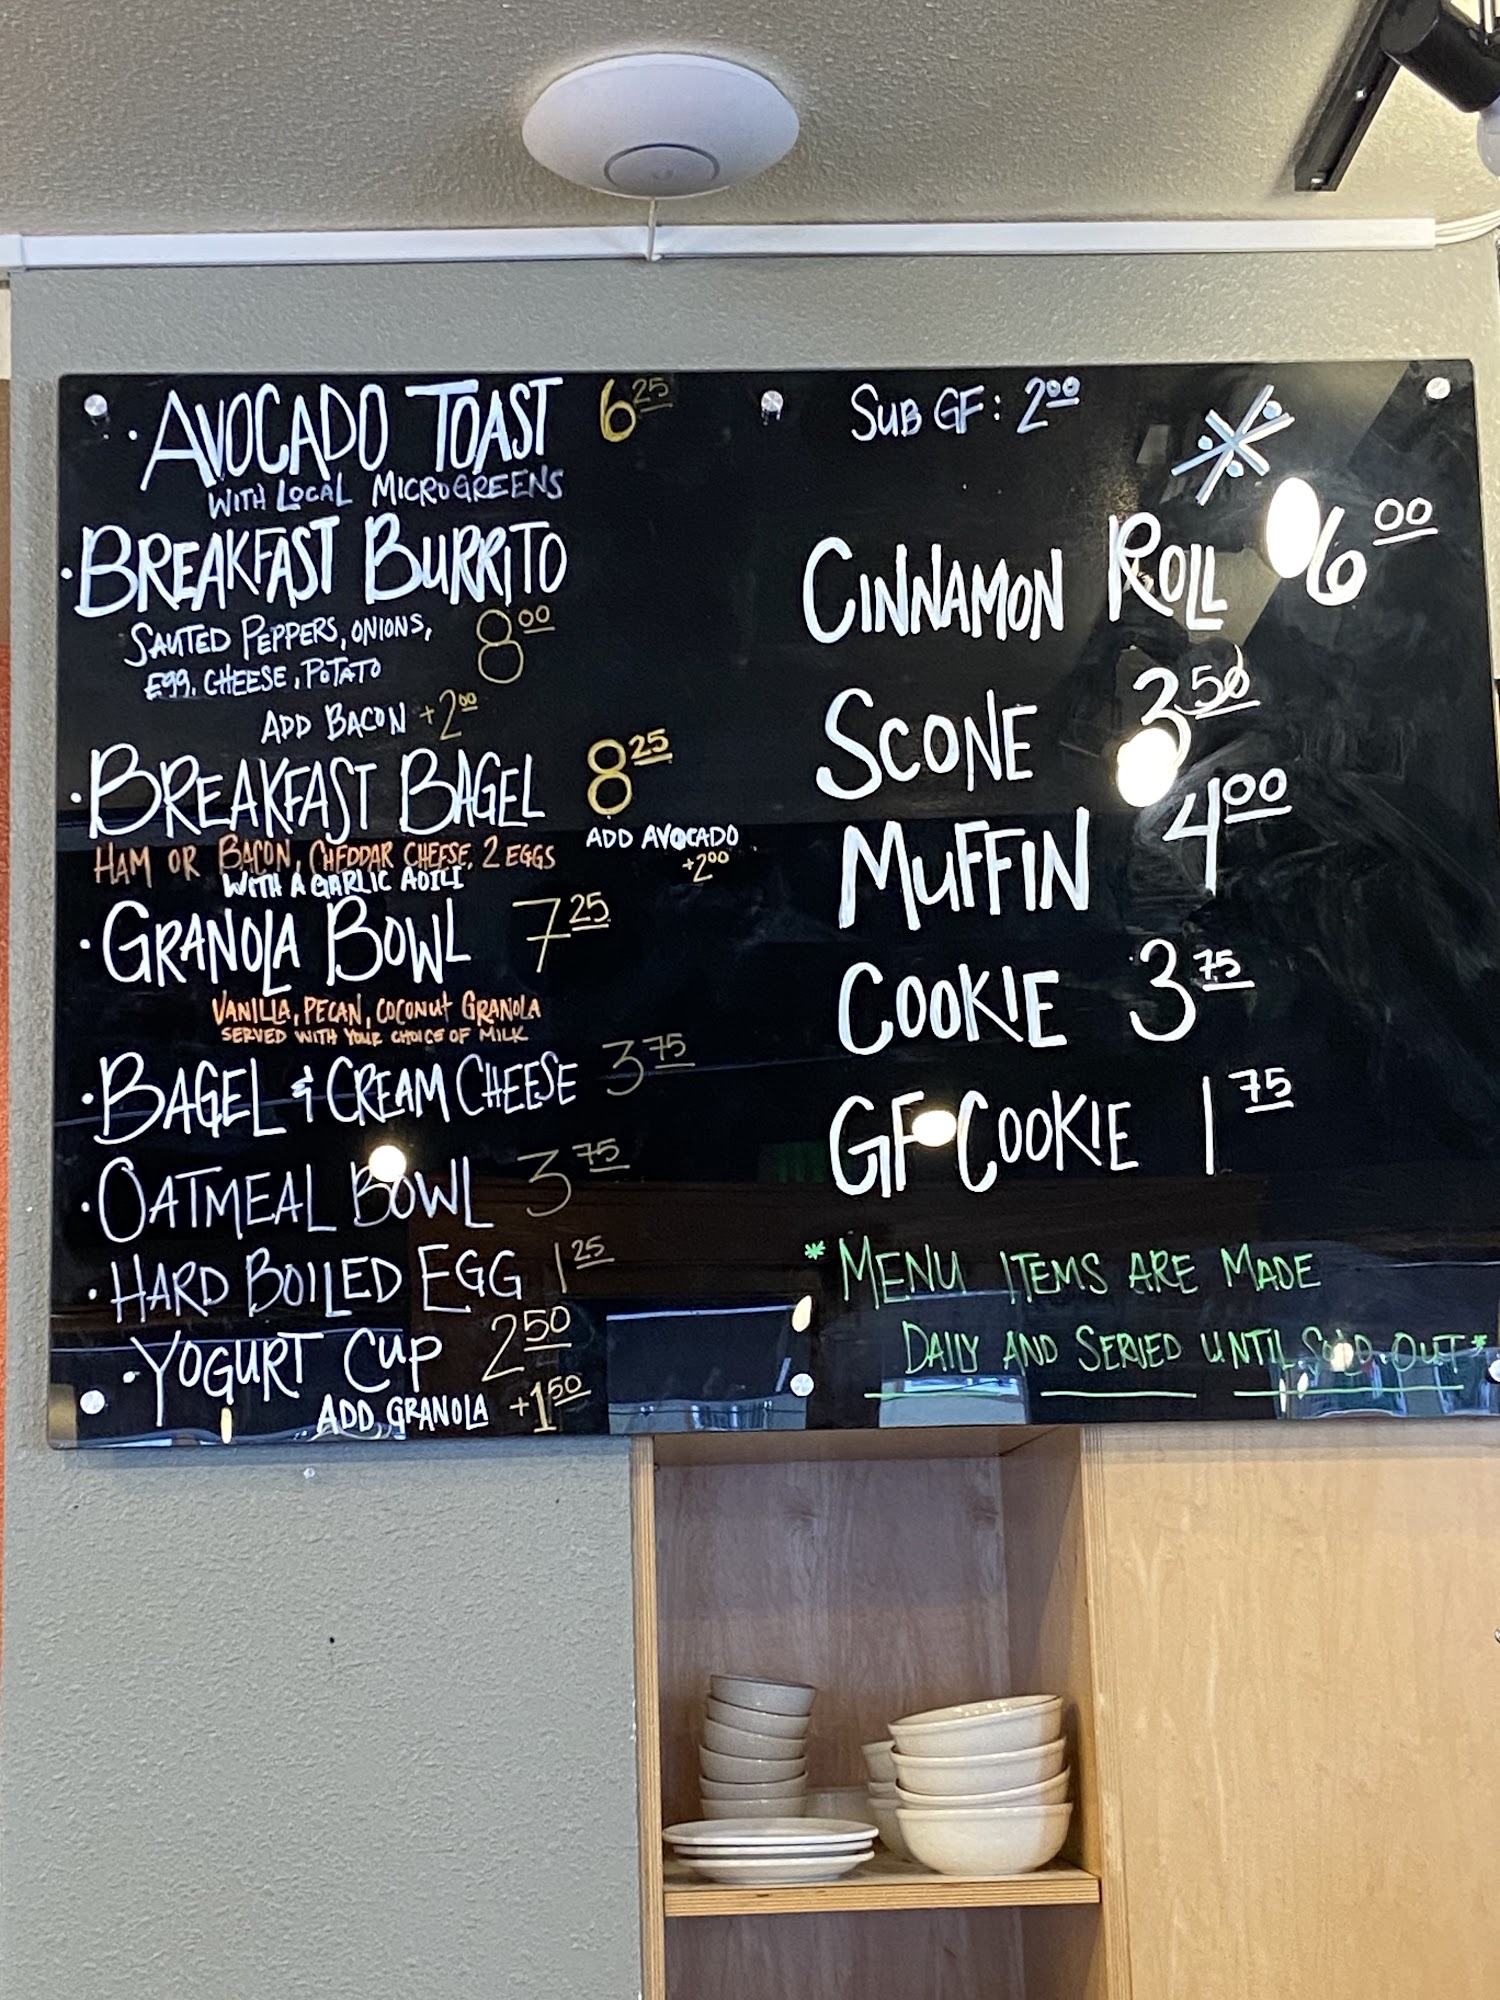 · AVOCADO TOAST 6 25
WITH LOCAL MICROGREENS
· BREAKFAST BURRITO
SAUTED PEPPERS, ONIONS, 8 00
Egg, CHEESE, POTATO
ADD BACON +2 00
· BREAKFAST BAGEL 8 25
HAM OR BACON, CHEDDAR CHEESE, 2 EGGS
WITH A GARLIC AOILI
ADD AVOCADO
+2 00
· GRANOLA BOWL 7 25
VANILLA, PECAN, COCONUT GRANOLA
SERVED WITH YOUR CHOICE OF MILK
· BAGEL & CREAM CHEESE 3 75
· OATMEAL BOWL 3 75
· HARD BOILED EGG 1 25
· YOGURT CUP 2 50
ADD GRANOLA +1 50
SUB GF: 2 00
CINNAMON ROLL 6 00
SCONE 3 50
MUFFIN 4 00
COOKIE 3 75
GF COOKIE 1 75
*MENU ITEMS ARE MADE
DAILY AND SERVED UNTIL SOLD OUT*